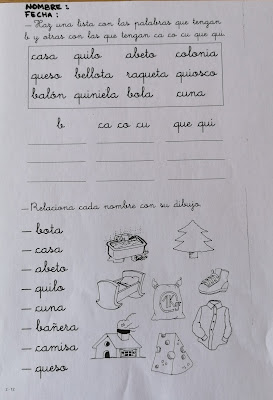 NOMBRE:
FECHA:
- Haz una lista con las palabras que tengan
b y otras con las que tengan ca co cu que qui.
casa quilo abeto colonia
queso bellota raqueta quiosco
balón quiniela bola cuna
b ca co cu que qui
- Relaciona cada nombre con su dibujo.
- bota
- casa
- abeto
- quilo
- cuna
- bañera
- camisa
- queso
1K